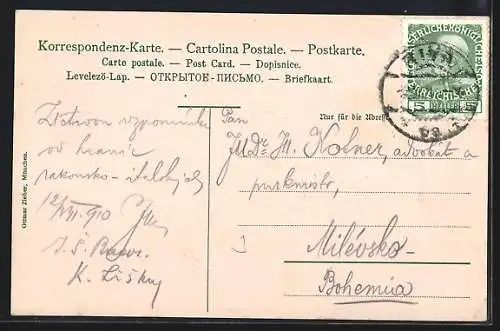 Korrespondenz-Karte. — Cartolina Postale. — Postkarte.
Carte postale. — Post Card. — Dopisnice.
Levelező-Lap. — ОТКРЫТОЕ-ПИСЬМО. — Briefkaart.
Nur für die Adresse
Ottmar Zieher, München.
5 HELLER 5
RIVA
Srdečnou vzpomínku
od hranic
rakousko-italských
12/VII. 910
K. Lišky
Pan
JUDr. M. Kolner, advokát a
purkmistr,
Milévsko-
Bohemia